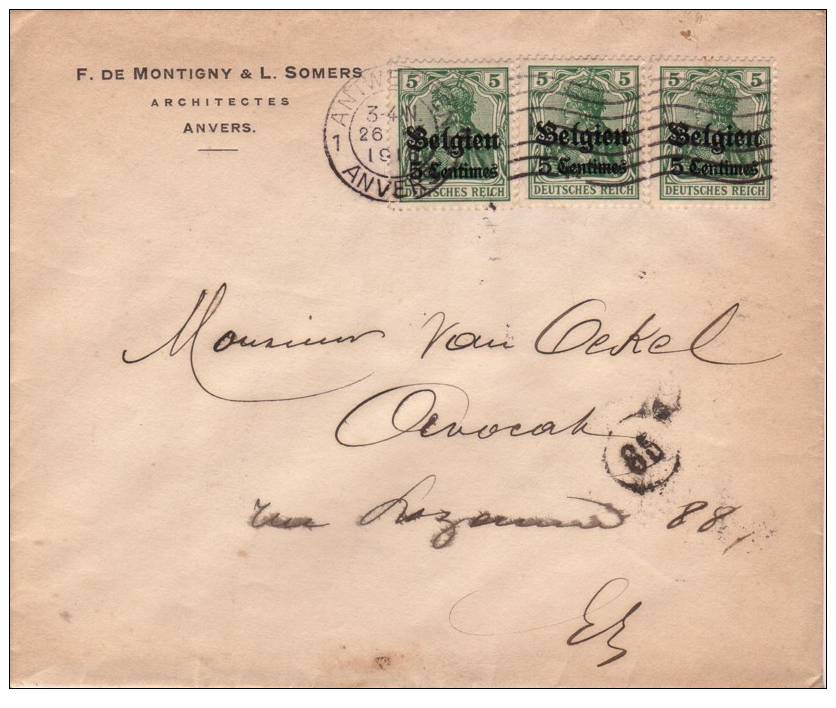 F. DE MONTIGNY & L. SOMERS
ARCHITECTES
ANVERS.
ANTW
3-4
26
19
1
ANVERS
5 5
Belgien
5 Centimes
DEUTSCHES REICH
5 5
Belgien
5 Centimes
DEUTSCHES REICH
5 5
Belgien
5 Centimes
DEUTSCHES REICH
Monsieur Van Oekel
Avocat
85
rue 88,